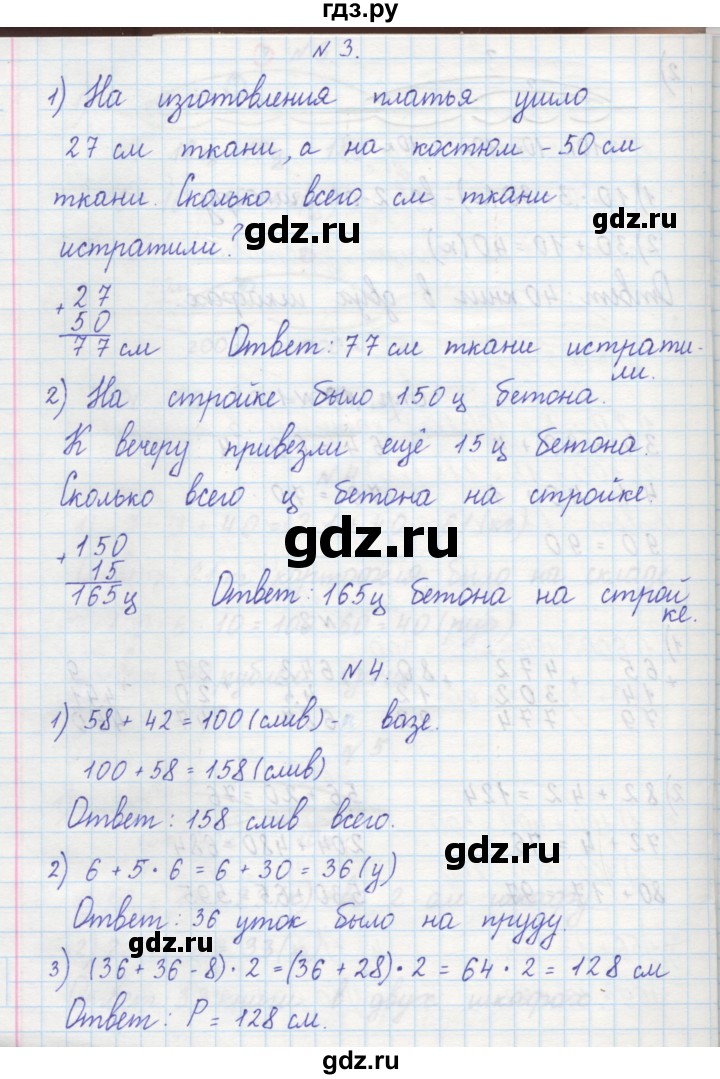 гдз.ру
№ 3.
1) На изготовления платья ушло
27 см ткани, а на костюм - 50 см
ткани. Сколько всего см ткани
истратили?
gdz.ru
+ 27
50
77 см Ответ: 77 см ткани истрати-
ли.
2) На стройке было 150 ц бетона.
К вечеру привезли ещё 15 ц бетона.
Сколько всего ц бетона на стройке.
gdz.ru
+ 150
15
165 ц Ответ: 165 ц бетона на строй
ке.
№ 4.
1) 58 + 42 = 100 (слив) - вазе.
100 + 58 = 158 (слив)
gdz.ru
Ответ: 158 слив всего.
gdz.ru
2) 6 + 5 · 6 = 6 + 30 = 36 (у)
Ответ: 36 уток было на пруду.
gdz.ru
3) (36 + 36 - 8) · 2 = (36 + 28) · 2 = 64 · 2 = 128 см
Ответ: P = 128 см.
gdz.ru
gdz.ru